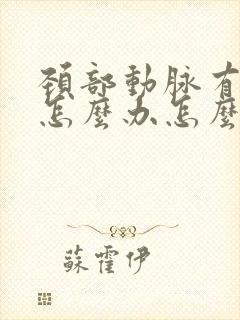 頚部動脉有
怎麼办怎麼
蘇霍伊